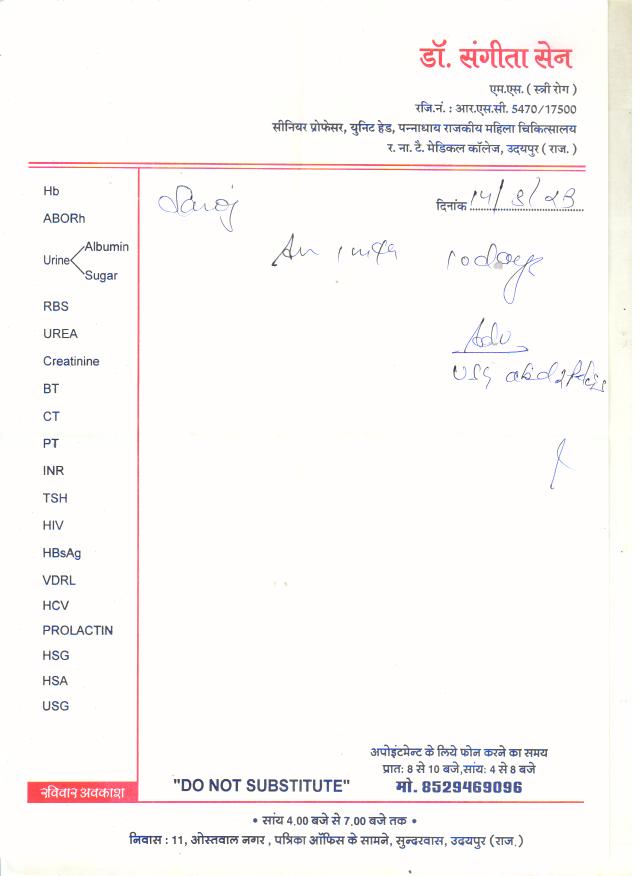 डॉ. संगीता सेन
एम.एस. ( स्त्री रोग )
रजि.नं. : आर.एस.सी. 5470/17500
सीनियर प्रोफेसर, युनिट हेड, पन्नाधाय राजकीय महिला चिकित्सालय
र. ना. टै. मेडिकल कॉलेज, उदयपुर ( राज. )
Saroj
दिनांक 14/8/23
Hb
ABORh
Urine
Albumin
Sugar
RBS
UREA
Creatinine
BT
CT
PT
INR
TSH
HIV
HBsAg
VDRL
HCV
PROLACTIN
HSG
HSA
USG
Adv
USG abd
अपोइंटमेन्ट के लिये फोन करने का समय
प्रात: 8 से 10 बजे,सांय: 4 से 8 बजे
मो. 8529469096
रविवार अवकाश
"DO NOT SUBSTITUTE"
• सांय 4.00 बजे से 7.00 बजे तक •
निवास : 11, ओस्तवाल नगर , पत्रिका ऑफिस के सामने, सुन्दरवास, उदयपुर (राज.)